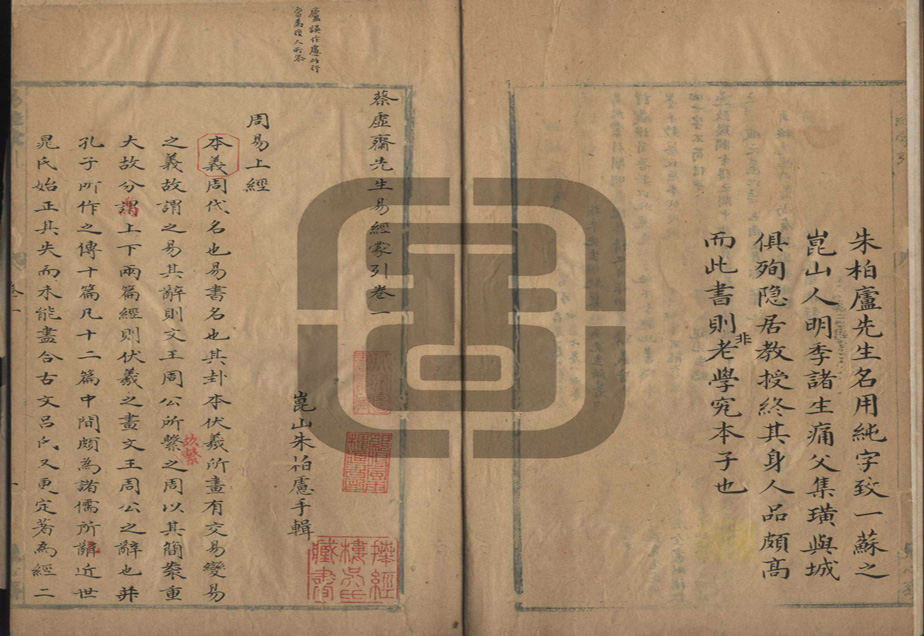 朱柏廬先生名用純字致一蘇之
崑山人明季諸生痛父集璜與城
俱殉隐居教授終其身人品頗高
而此書則非老學究本子也
廬誤作慮
蔡虛齋先生易經蒙引卷一
崑山朱柏慮手輯
周易上經
本義周代名也易書名也其卦本伏羲所畫有交易變易
之義故謂之易其辭則文王周公所繫之周以其簡袠重
大故分謂上下兩篇經則伏羲之畫文王周公之辭也并
孔子所作之傳十篇凡十二篇中間頗為諸儒所亂近世
晁氏始正其失而未能盡合古文呂氏又更定著為經二
捧經樓吳氏藏書